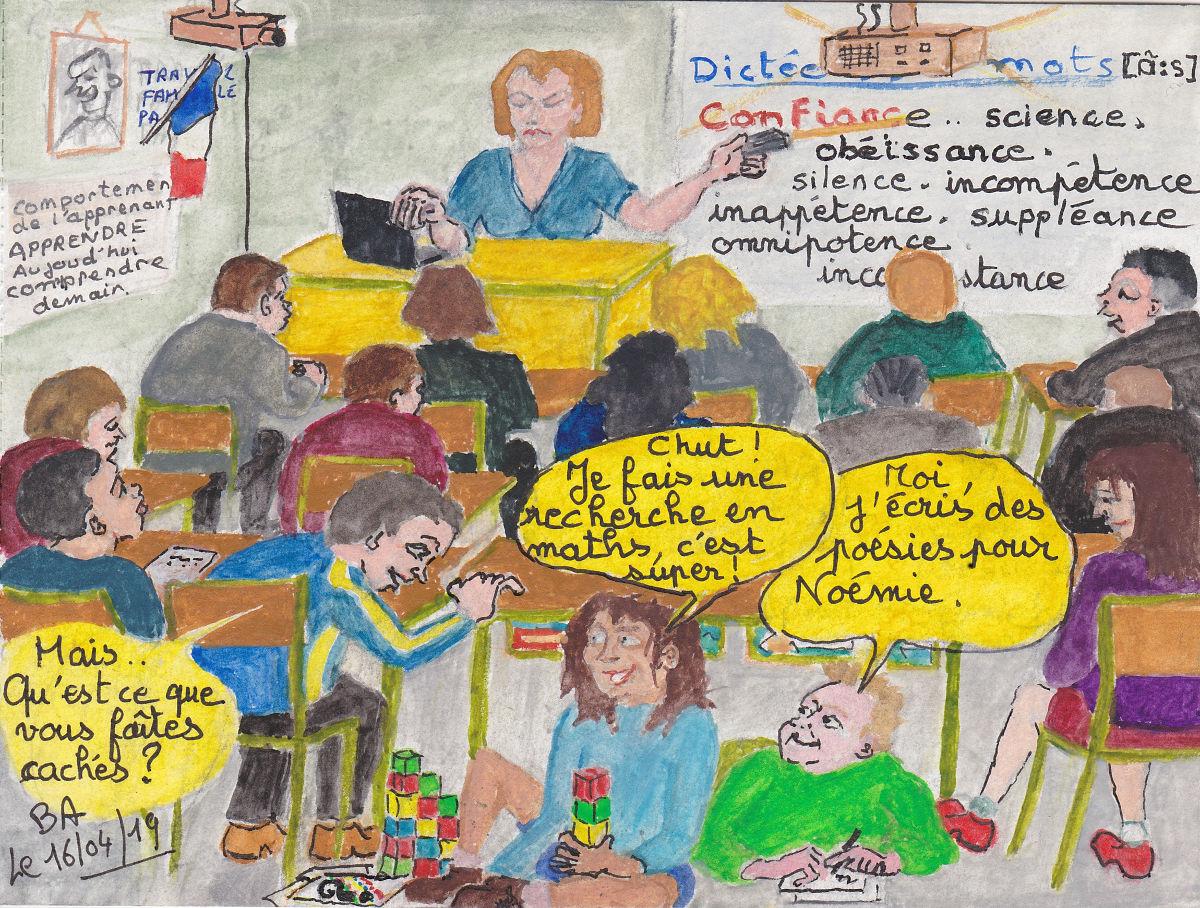 TRAV
FAM LE
PA
comportemen
de l'apprenant
APPRENDRE
Aujoud'hui
comprendre
demain.
Dictée mots [ã:s]
Confiance.. science.
obéissance.
silence. incompétence
inappétence. suppléance
omnipotence
inco stance
Chut !
Je fais une
recherche en
maths, c'est
super !
Moi,
j'écris des
poésies pour
Noémie.
Mais..
Qu'est ce que
vous faîtes
cachés ?
BA
Le 16/04/19